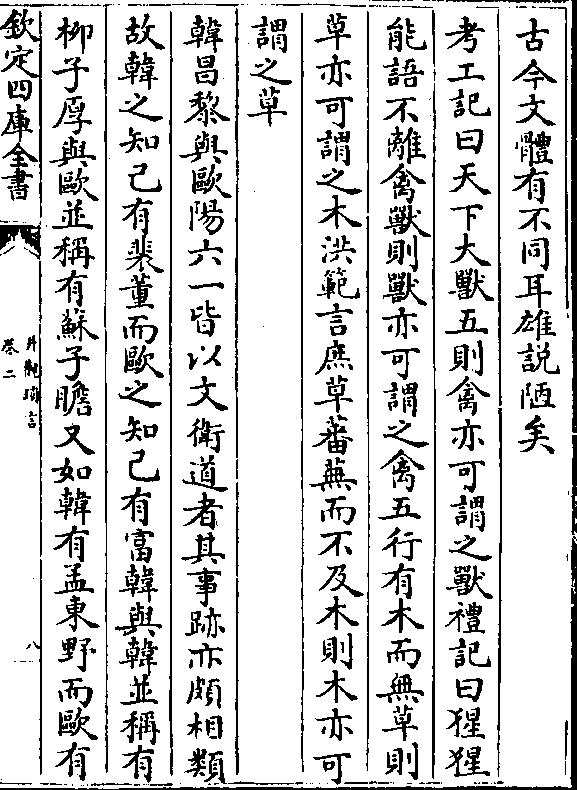 古今文體有不同耳雄説陋矣
考工記曰天下大獸五則禽亦可謂之獸禮記曰猩猩
能語不離禽獸則獸亦可謂之禽五行有木而無草則
草亦可謂之木洪範言庶草蕃蕪而不及木則木亦可
謂之草
韓昌黎與歐陽六一皆以文衛道者其事跡亦頗相類
故韓之知己有裴董而歐之知己有富韓與韓並稱有
柳子厚與歐並稱有蘇子瞻又如韓有孟東野而歐有
欽定四庫全書
卷二
八